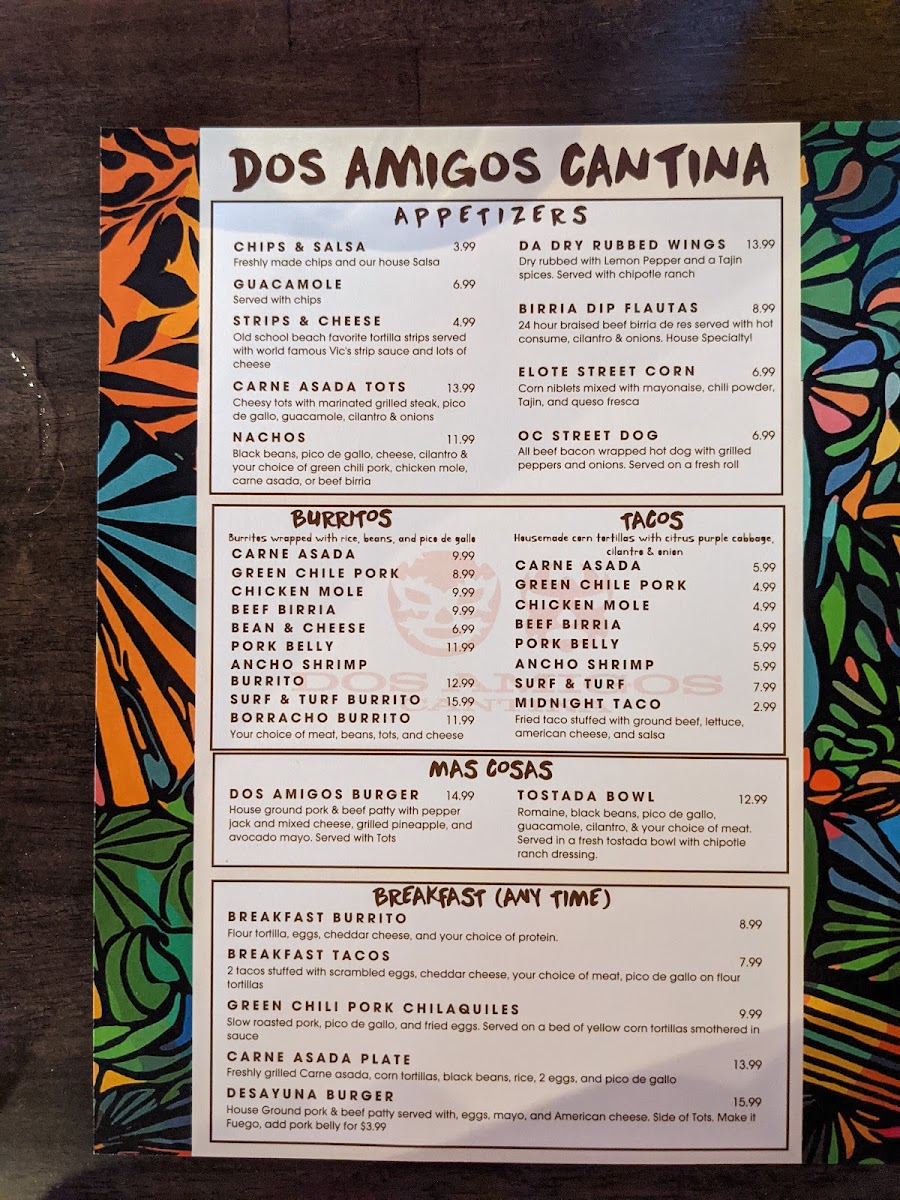 DOS AMIGOS CANTINA
APPETIZERS
CHIPS & SALSA 3.99
Freshly made chips and our house Salsa
GUACAMOLE 6.99
Served with chips
STRIPS & CHEESE 4.99
Old school beach favorite tortilla strips served
with world famous Vic's strip sauce and lots of
cheese
CARNE ASADA TOTS 13.99
Cheesy tots with marinated grilled steak, pico
de gallo, guacamole, cilantro & onions
NACHOS 11.99
Black beans, pico de gallo, cheese, cilantro &
your choice of green chili pork, chicken mole,
carne asada, or beef birria
DA DRY RUBBED WINGS 13.99
Dry rubbed with Lemon Pepper and a Tajin
spices. Served with chipotle ranch
BIRRIA DIP FLAUTAS 8.99
24 hour braised beef birria de res served with hot
consume, cilantro & onions. House Specialty!
ELOTE STREET CORN 6.99
Corn niblets mixed with mayonaise, chili powder,
Tajin, and queso fresca
OC STREET DOG 6.99
All beef bacon wrapped hot dog with grilled
peppers and onions. Served on a fresh roll
BURRITOS
Burritos wrapped with rice, beans, and pico de gallo
CARNE ASADA 9.99
GREEN CHILE PORK 8.99
CHICKEN MOLE 9.99
BEEF BIRRIA 9.99
BEAN & CHEESE 6.99
PORK BELLY 11.99
ANCHO SHRIMP
BURRITO 12.99
SURF & TURF BURRITO 15.99
BORRACHO BURRITO 11.99
Your choice of meat, beans, tots, and cheese
TACOS
Housemade corn tortillas with citrus purple cabbage,
cilantro & onion
CARNE ASADA 5.99
GREEN CHILE PORK 4.99
CHICKEN MOLE 4.99
BEEF BIRRIA 4.99
PORK BELLY 5.99
ANCHO SHRIMP 5.99
SURF & TURF 7.99
MIDNIGHT TACO 2.99
Fried taco stuffed with ground beef, lettuce,
american cheese, and salsa
DOS AMIGOS
CANTINA
MAS COSAS
DOS AMIGOS BURGER 14.99
House ground pork & beef patty with pepper
jack and mixed cheese, grilled pineapple, and
avocado mayo. Served with Tots
TOSTADA BOWL 12.99
Romaine, black beans, pico de gallo,
guacamole, cilantro, & your choice of meat.
Served in a fresh tostada bowl with chipotle
ranch dressing.
BREAKFAST (ANY TIME)
BREAKFAST BURRITO 8.99
Flour tortilla, eggs, cheddar cheese, and your choice of protein.
BREAKFAST TACOS 7.99
2 tacos stuffed with scrambled eggs, cheddar cheese, your choice of meat, pico de gallo on flour
tortillas
GREEN CHILI PORK CHILAQUILES 9.99
Slow roasted pork, pico de gallo, and fried eggs. Served on a bed of yellow corn tortillas smothered in
sauce
CARNE ASADA PLATE 13.99
Freshly grilled Carne asada, corn tortillas, black beans, rice, 2 eggs, and pico de gallo
DESAYUNA BURGER 15.99
House Ground pork & beef patty served with, eggs, mayo, and American cheese. Side of Tots. Make it
Fuego, add pork belly for $3.99